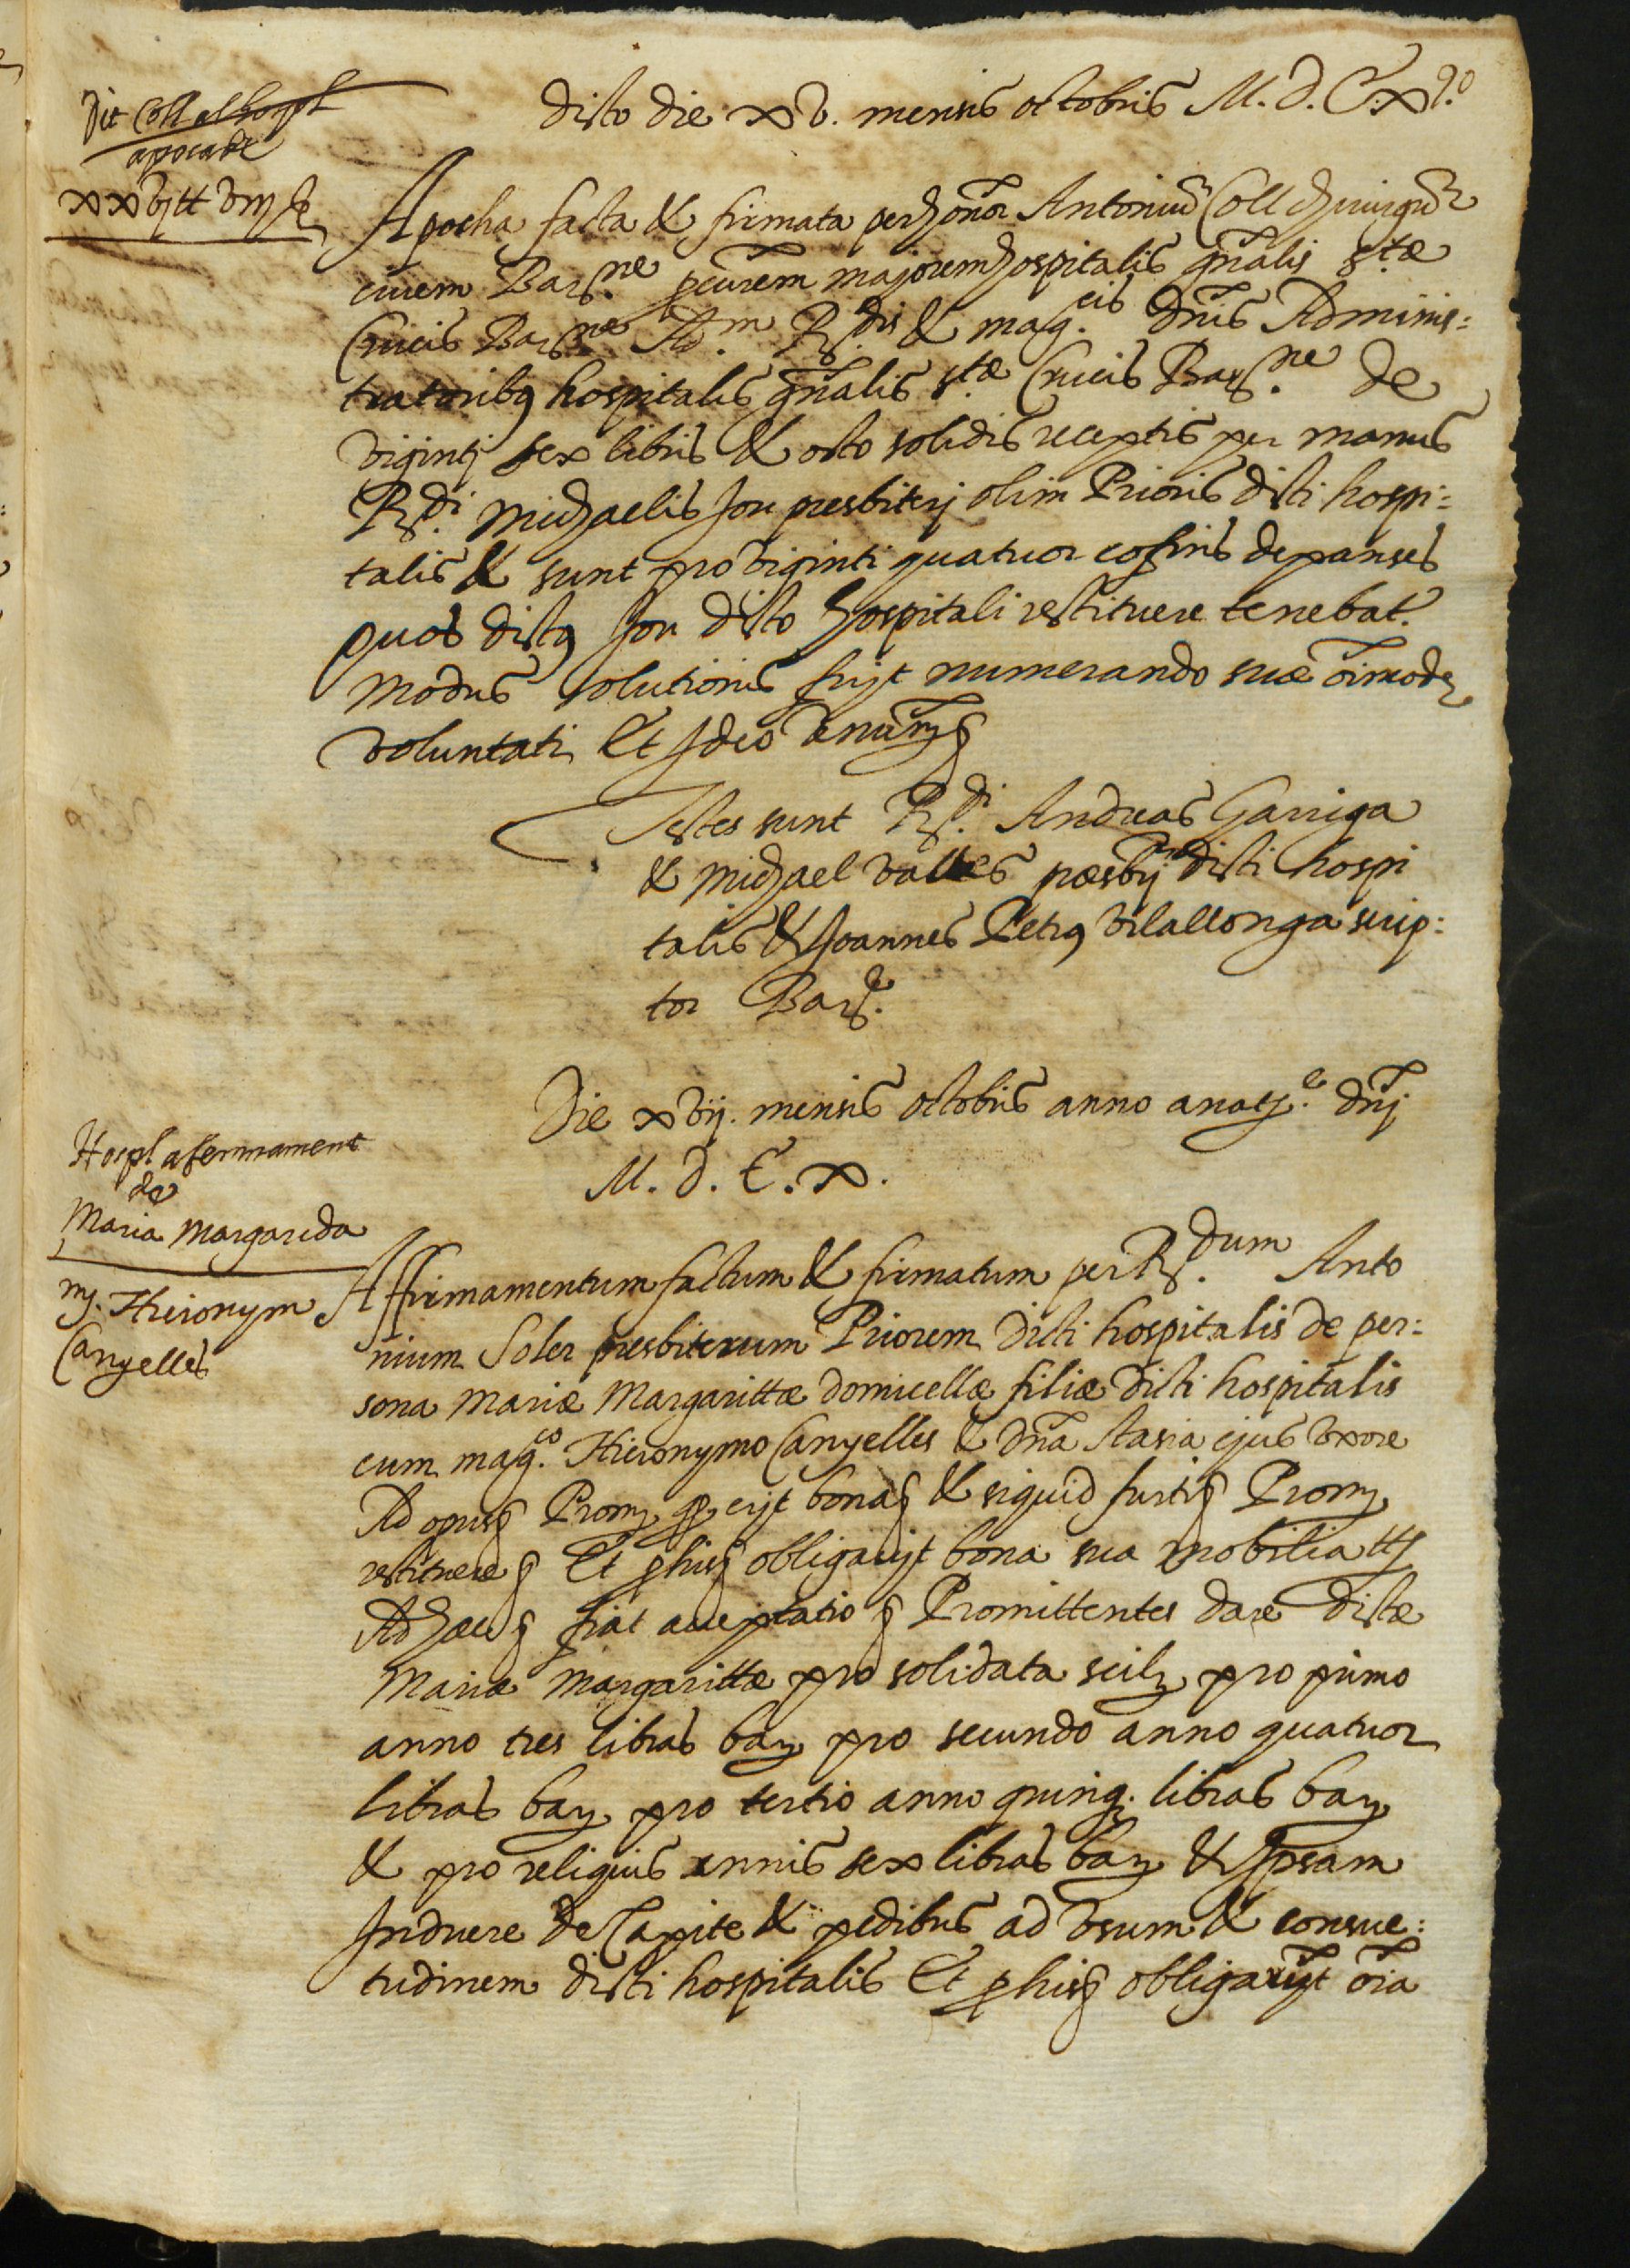 Dicto die xv. mensis octobris M.D.C.x.º
Dit Coll al hospl
apoca de
xxvj tt viij s
Apocha facta & firmata per honor. Antonium Coll chirurgum
civem Barne. procurem majorem hospitalis gnalis stæ
Crucis Barne Adm. Rdis & magcis. Dnis Adminis:
tratoribus hospitalis gnalis stæ Crucis Barne. de
viginti sex libris & octo solidis receptis per manus
Rdi. Michaelis Jou presbiterj olim Prioris dicti hospi:
talis & sunt pro viginti quatuor cofinis de panses
quos dictus Jou dicto hospitali restituere tenebat.
Modus solutionis fuit numerando suæ oimode
voluntati Et Ideo
Testes sunt Rdi. Andreas Garriga
& Michael Valles præsbri dicti hospi
talis & Joannes Petrus Vilallonga scrip:
tor Barc.
Die xvij. mensis octobris anno a nate. dnj
M.D.C.x.
Hospl afermament
de
Maria Margarida
mj. Hieronym
Canyelles
Affirmamentum factum & firmatum per Rdum. Anto
nium Soler presbiterum Priorem dicti hospitalis de per:
sona Mariæ Margarittæ domicellæ filiæ dicti hospitalis
cum magco. Hieronymo Canyelles & dna Stasia ejus uxore
Ad opus Prom. erit bona & siquid furtis Prom.
restituere Et p his obligavit bona sua mobilia
Ad hæc fiat acceptatio Promittentes dare dictæ
Mariæ Margarittæ pro solidata scilz pro primo
anno tres libras bar. pro secundo anno quatuor
libras bar. pro tertio anno quinq. libras bar.
& pro reliquis annis sex libras bar. & Ipsam
Induere de Capite & pedibus ad usum & consue:
tudinem dicti hospitalis Et p his obligarunt oia